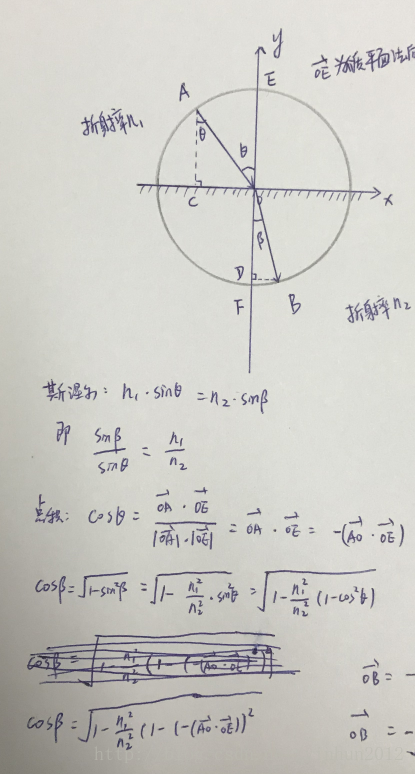 y
E
OE为该平面法向
A
折射率n₁
θ
θ
C
O
x
β
D
F
B
折射率n₂
斯涅尔: n₁·sinθ = n₂·sinβ
即 sinβ/sinθ = n₁/n₂
点积: cosθ = OA·OE/|OA|·|OE| = OA·OE = -(AO·OE)
cosβ = √1-sin²β = √1-n₁²/n₂²·sin²θ = √1-n₁²/n₂²(1-cos²θ)
cosβ = √1-n₁²/n₂²(1-(-(AO·OE))²
OB = -
cosβ = √1-n₁²/n₂²(1-(-(AO·OE))²
OB = -